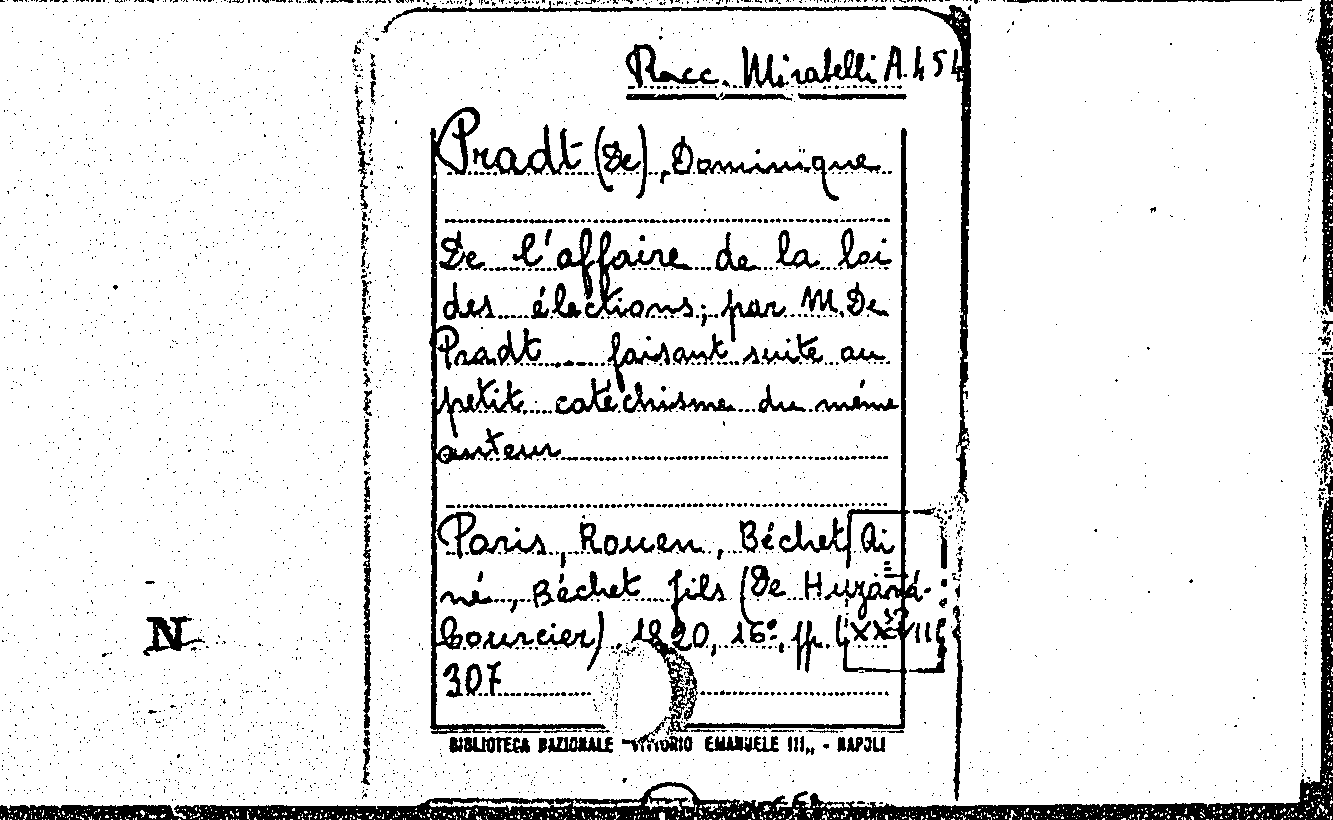 Racc. Mirabelli A. 454
Pradt (De), Dominique
De l'affaire de la loi
des élections; par M. De
Pradt... faisant suite au
petit catéchisme du même
auteur
Paris, Rouen, Béchet Ai
né, Béchet fils (De Huzard-
Courcier) 1820, 16º, pp.
307
N
BIBLIOTECA NAZIONALE "VITTORIO EMANUELE III„ - NAPOLI